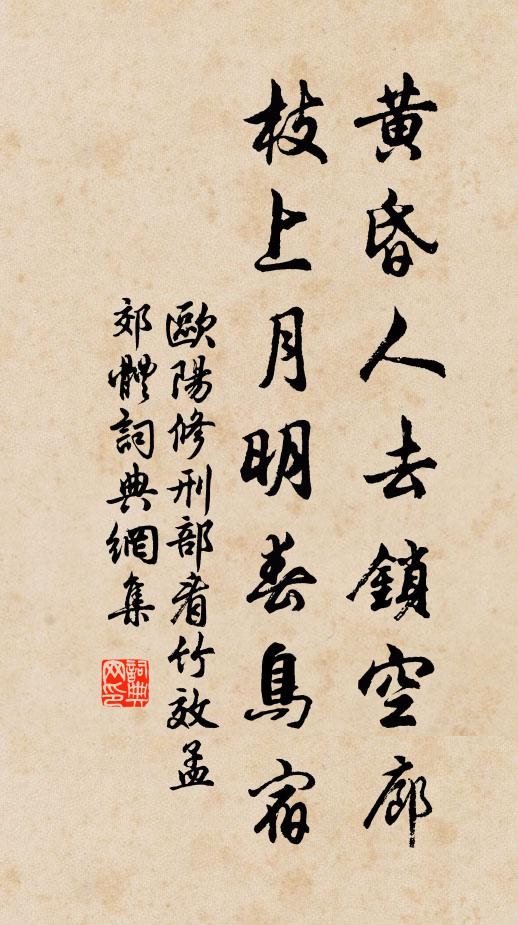 黄昏人去鎖空廊
枝上月明春鳥宿
歐陽修刑部看竹效孟
郊體詞典網集
詞典网印